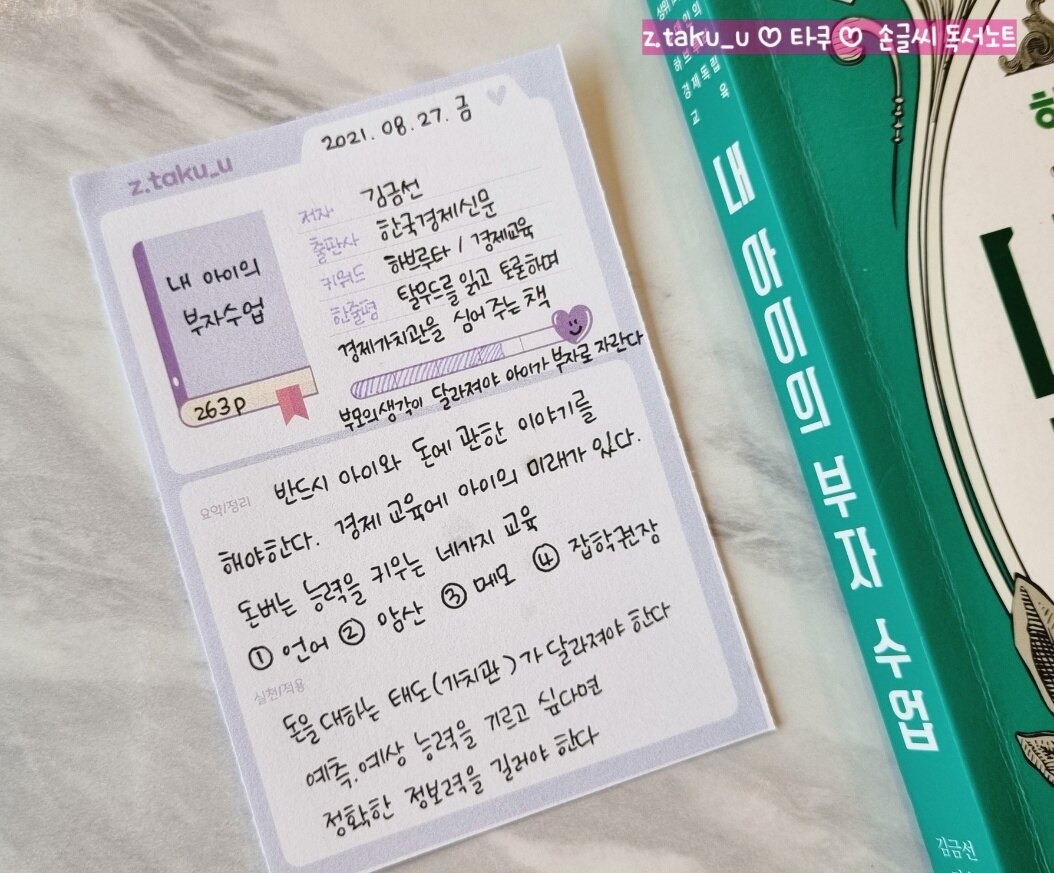 z.taku_u ♡ 타쿠 ♡ 손글씨 독서노트
z.taku_u
2021. 08. 27. 금
내 아이의
부자수업
263p
저자 김금선
출판사 한국경제신문
키워드 하브루타 / 경제교육
한줄평 탈무드를 읽고 토론하며
경제가치관을 심어 주는 책
부모의 생각이 달라져야 아이가 부자로 자란다
요약/정리 반드시 아이와 돈에 관한 이야기를
해야한다. 경제 교육에 아이의 미래가 있다.
돈버는 능력을 키우는 네가지 교육
① 언어 ② 암산 ③ 메모 ④ 잡학권장
실천/적용
돈을 대하는 태도(가치관)가 달라져야 한다
예측, 예상 능력을 기르고 싶다면
정확한 정보력을 길러야 한다
경제독립
교육
내 아이의 부자 수업
김금선